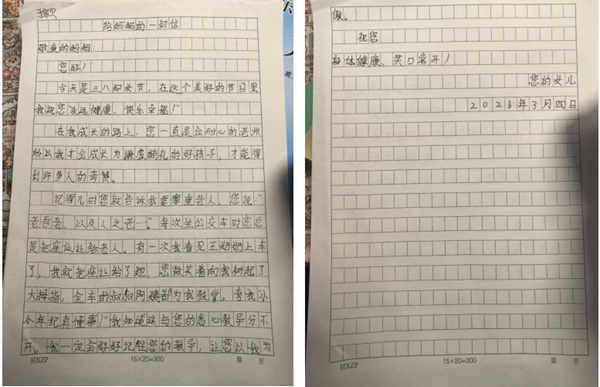 给妈妈的一封信
敬爱的妈妈：
您好！
今天是三八妇女节，在这个美好的节日里
我祝您永远健康，快乐幸福！
在我成长的路上，您一直是位的老师
所以我才会成长为谦虚有礼的好孩子，才能得
到许多人的夸赞。
记得儿时您就告诉我要尊重老人。您说“
老吾老，以及人之老”。每次坐公交车时您总
是把座位让给老人。有一次我看见王奶奶上车
了，我就把座让给了她，您微笑着向我树起了
大拇指，全车的叔叔阿姨都为我鼓掌。夸我小
小年纪真懂事！”我知道这与您的悉心教导分不
开。我一定会好好记住您的教导，让您以我为
15×20=300
HXZP
第 页
傲。
祝您
身体健康、笑口常开！
您的女儿
年3月四日
15×20=300
HXZP
第 页